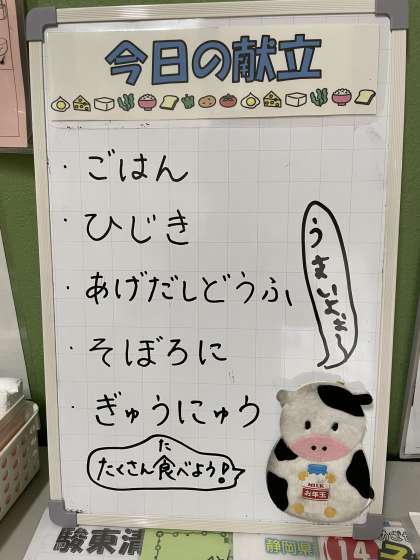 今日の献立
・ごはん
・ひじき
・あげだしどうふ
・そぼろに
・ぎゅうにゅう
うまいよぉ〜
た
たくさん食べよう!
MILK
お年玉
駿東
静岡県
14